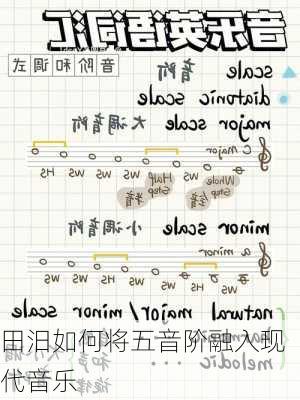 音乐英语词汇
音阶和调式
scale 音阶
diatonic scale
major scale 大调音阶
C major
WS WS HS WS WS WS HS
Whole step 全音 Half step 半音
minor scale 小调音阶
a minor
WS HS WS WS HS WS WS
natural major/minor scale
田汨如何将五音阶融入现
代音乐
melodic 旋律